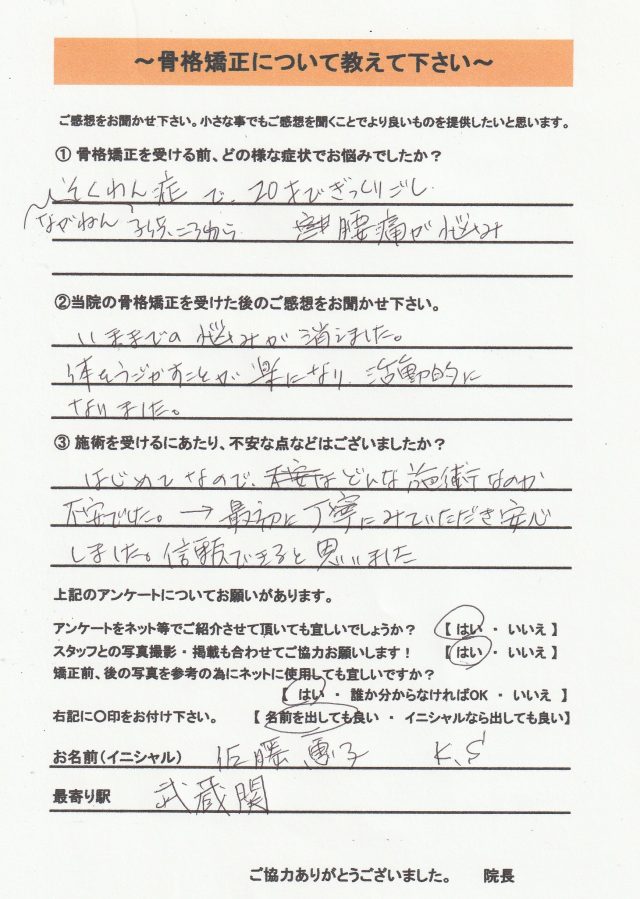 ～骨格矯正について教えて下さい～
ご感想をお聞かせ下さい。小さな事でもご感想を聞くことでより良いものを提供したいと思います。
① 骨格矯正を受ける前、どの様な症状でお悩みでしたか？
そくわん症で、20才でぎっくりごし
ながねん 子供ころから 腰痛が悩み
②当院の骨格矯正を受けた後のご感想をお聞かせ下さい。
いままでの悩みが消えました。
体をうごかすことが楽になり、活動的に
なりました。
③ 施術を受けるにあたり、不安な点などはございましたか？
はじめてなので、どんな施術なのか
不安でした。→最初に丁寧にみていただき安心
しました。信頼できると思いました
上記のアンケートについてお願いがあります。
アンケートをネット等でご紹介させて頂いても宜しいでしょうか？ 【 はい ・ いいえ 】
スタッフとの写真撮影・掲載も合わせてご協力お願いします！ 【 はい ・ いいえ 】
矯正前、後の写真を参考の為にネットに使用しても宜しいですか？
【 はい ・ 誰か分からなければOK ・ いいえ 】
右記に〇印をお付け下さい。 【 名前を出しても良い ・ イニシャルなら出しても良い】
お名前（イニシャル） 佐藤 恵子 K.S
最寄り駅 武蔵関
ご協力ありがとうございました。 院長